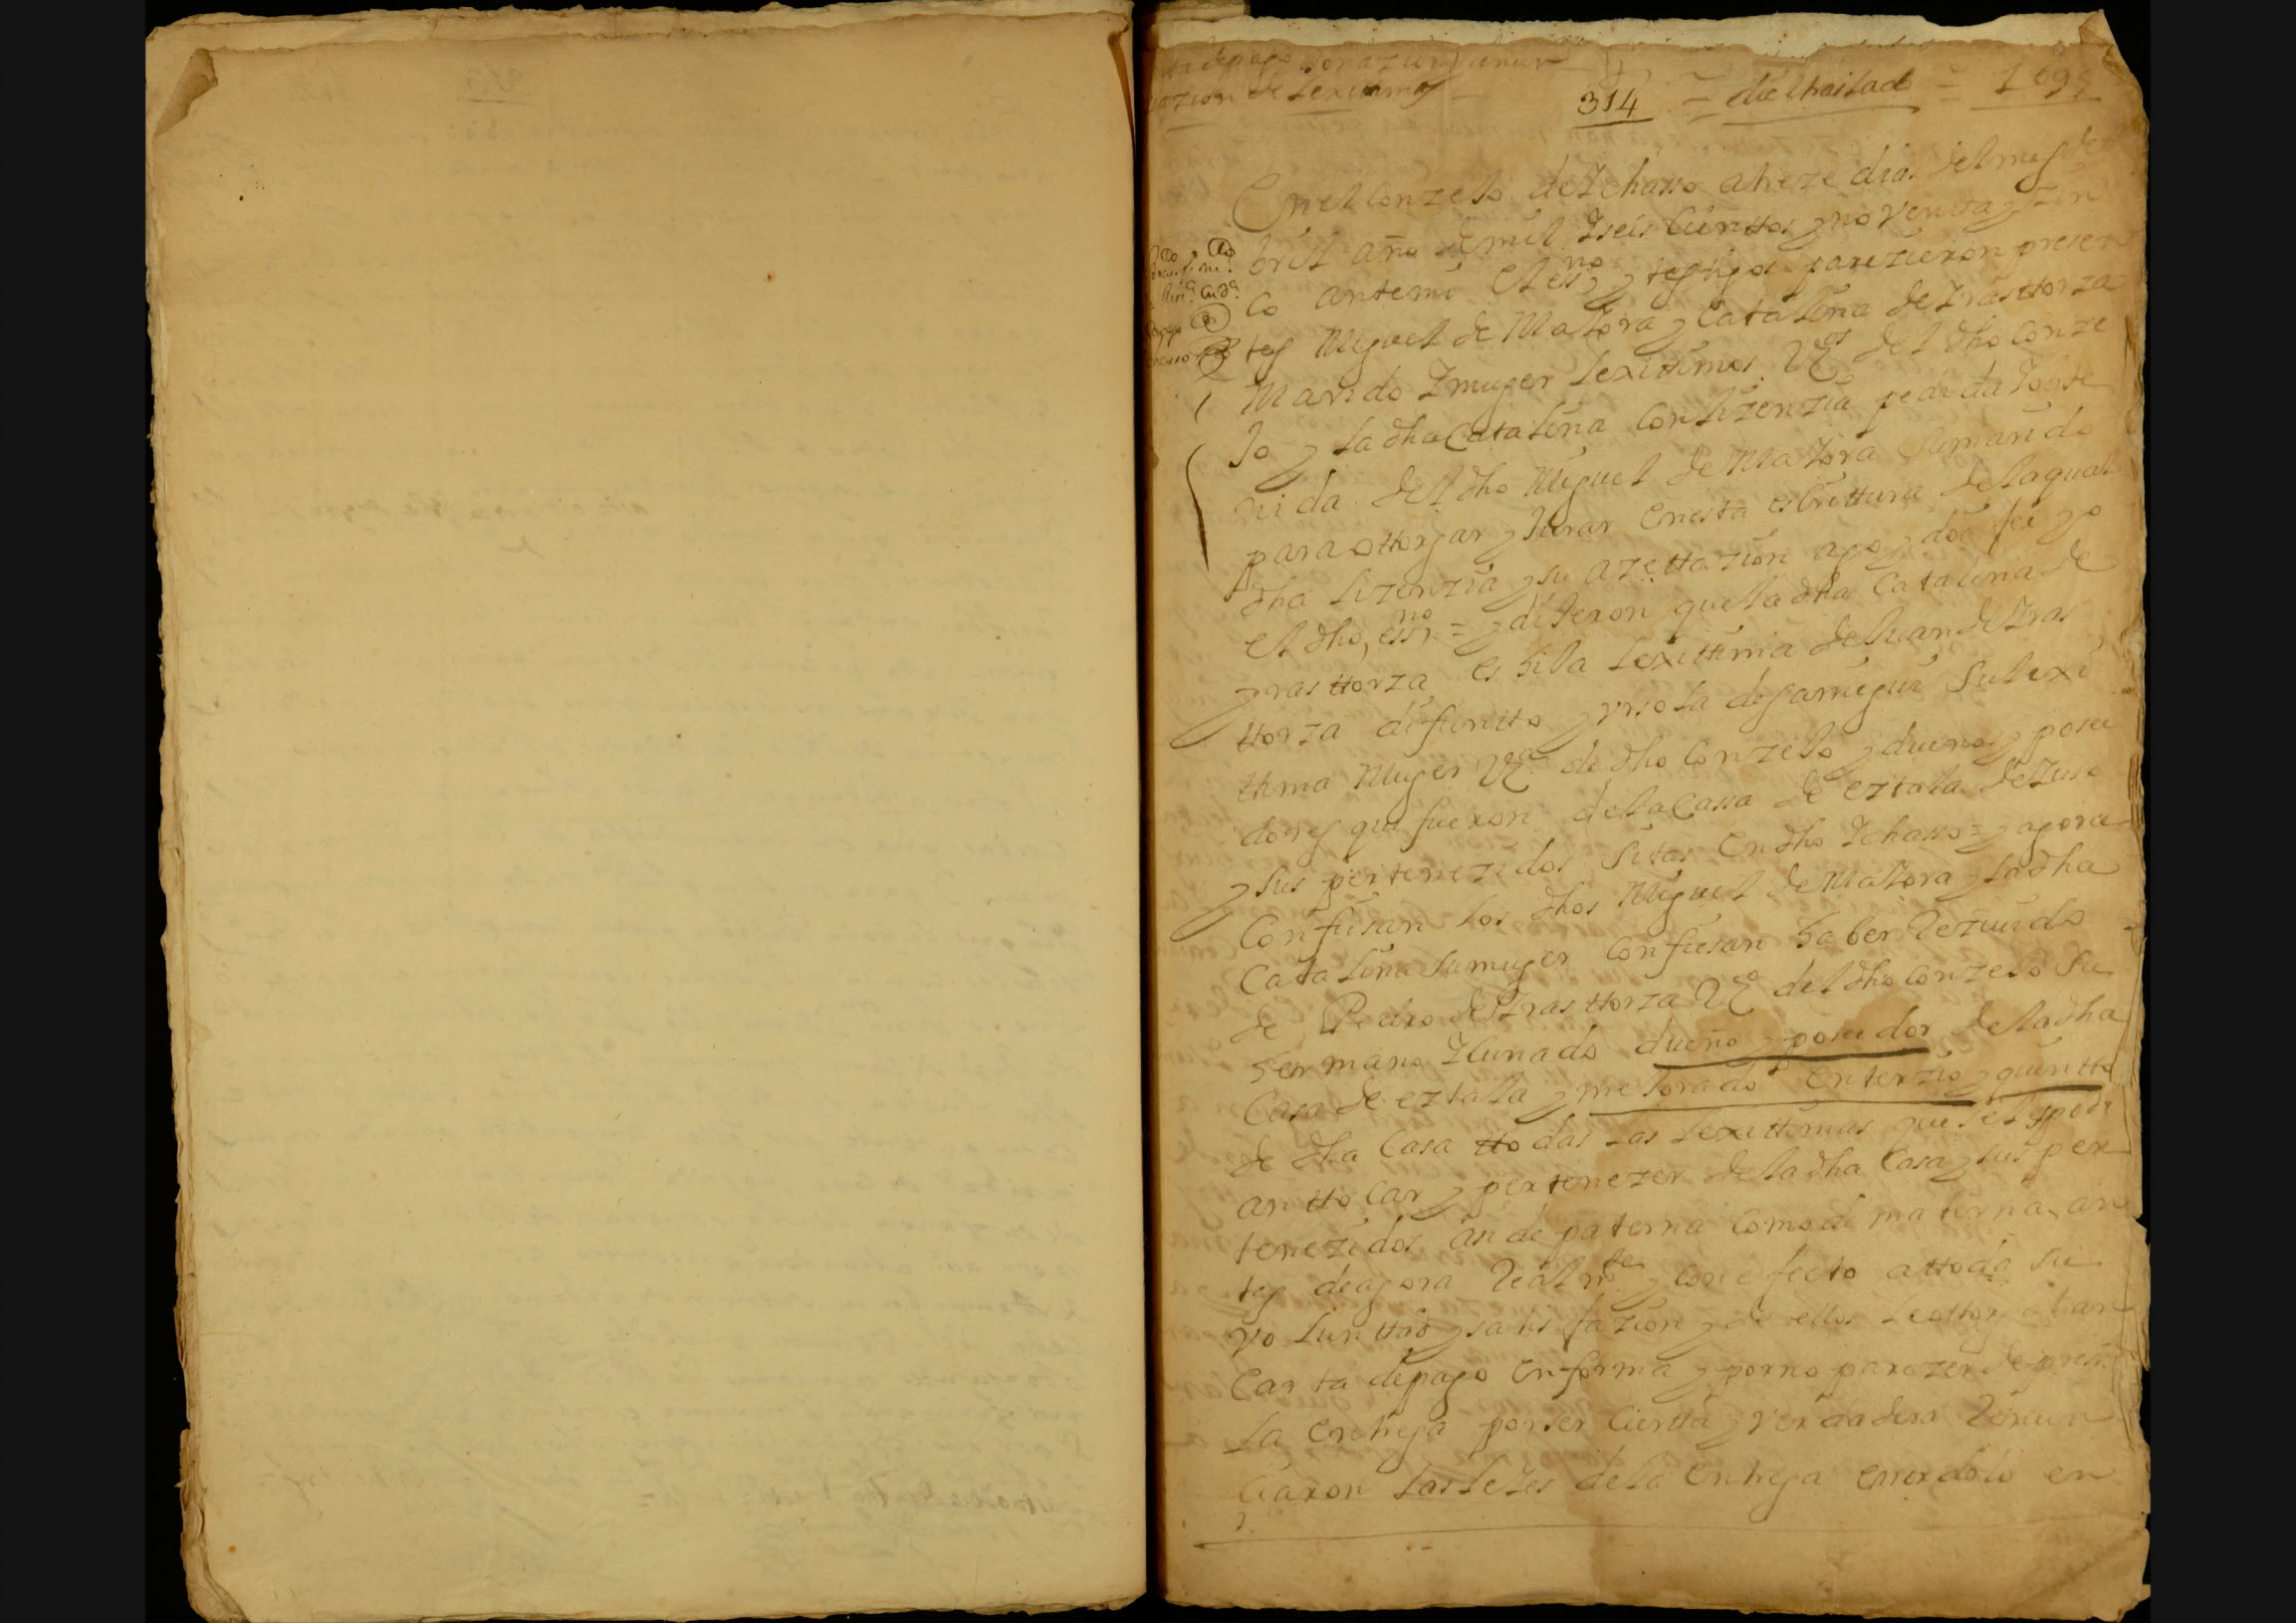 carta de pago donazion y renun
ziazion de lexitimas
314 = duelhaitado = 1695
En el conzejo de Ichasso a treze dias del mes de
bril año de mil y seis cientos y noventa y zin
co ante mi el essno y testigos parezieron presen
tes Miguel de Maiora y Catalina de Yrasttorza
Marido y muger lexittimos Vzos del dho conze
jo y la dha Catalina con lizenzia pedida y obte
nida del dho Miguel de Maiora su marido
para ottorgar y jurar en esta escrittura de la qual
dha lizenzia y su azettazion ago y doi fee yo
el dho essno = y dijeron que la dha Catalina de
yrasttorza es hija lexittima de Juan de Yras
ttorza difuntto y Ursola de garmegui su lexi
ttima Muger Vza de dho conzejo y dueños y posee
dores que fueron de la Cassa de eztala de Yuso
y sus pertenezidos sitos en dho Ichasso = y agora
Confiesan los dhos Miguel de Maiora y la dha
Catalina su muger confiesan haber rezivido
de Pedro de Yrasttorza Vzo del dho conzejo su
hermano y cunado dueño y poseedor de la dha
Casa de eztala y mejorado en terzio y quintto
de dha Casa ttodas las lexittimas que les podi
an ttocar y pertenezer de la dha Casa y sus per
tenezidos asi de paterna como de materna an
tes de agora realmte y con efecto a ttoda su
voluntta y satisfazion y de ellos le ottorgaban
Carta de pago en forma y por no parezer de pressn
la entrega por ser cierta y verdadera renun
ciaron las leies de la entrega error dolo en